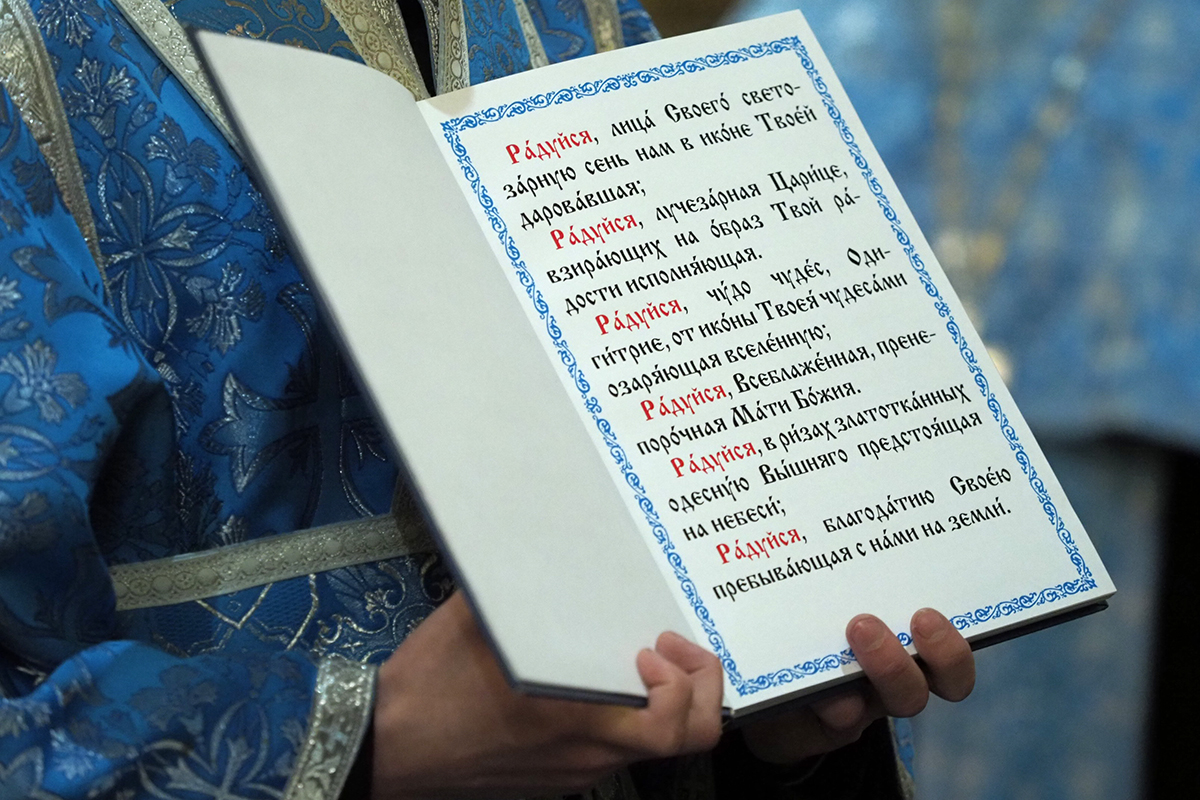 Ра́дуйся, лица́ Своего́ свето-
за́рную сень нам в ико́не Твое́й
дарова́вшая;
Ра́дуйся, лучеза́рная Цари́це,
взира́ющих на о́браз Твой ра́-
дости исполня́ющая.
Ра́дуйся, чу́до чуде́с, Оди-
ги́трие, от ико́ны Твоея́ чудеса́ми
озаря́ющая вселе́нную;
Ра́дуйся, Всеблаже́нная, прене-
поро́чная Ма́ти Бо́жия.
Ра́дуйся, в ри́зах златотка́нных
одесну́ю Вы́шняго предстоя́щая
на небеси́;
Ра́дуйся, благода́тию Свое́ю
пребыва́ющая с на́ми на земли́.